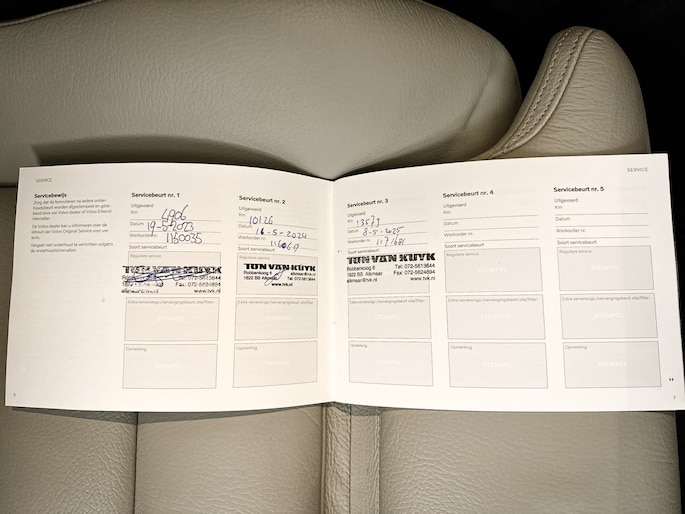 SERVICE
Servicebewijs
Zorg dat de formulieren na iedere onder-
houdsbeurt worden afgestempeld en gete-
kend door uw Volvo dealer of Volvo Erkend
Hersteller.
Uw Volvo dealer kan u informeren over de
inhoud van Volvo Original Service voor uw
auto.
Vergeet niet onderhoud te verrichten volgens
de onderhoudsintervallen.
6
Servicebeurt nr. 1
Uitgevoerd
Km
4906
Datum 19-5-2023
Werkorder nr. 1160035
Soort servicebeurt
Reguliere service
TON VAN KUYK
Tel: 072-5613644
Fax: 072-5624894
www.tvk.nl
Extra verversings-/vervangingsbeurt olie/filter:
STEMPEL
Opmerking
STEMPEL
Servicebeurt nr. 2
Uitgevoerd
Km 10126
Datum 16-5-2024
Werkorder nr.
Soort servicebeurt
TON VAN KUYK
Robbenkoog 6
1822 BB Alkmaar
alkmaar@tvk.nl
Tel: 072-5613644
Fax: 072-5624894
www.tvk.nl
Extra verversings-/vervangingsbeurt olie/filter:
STEMPEL
Opmerking
STEMPEL
SERVICE
Servicebeurt nr. 3
Uitgevoerd
Km 13579
Datum 8-5-2025
Werkorder nr.
Soort servicebeurt
Reguliere service
TON VAN KUYK
Robbenkoog 6
1822 BB Alkmaar
alkmaar@tvk.nl
Tel: 072-5613644
Fax: 072-5624894
www.tvk.nl
Extra verversings-/vervangingsbeurt olie/filter:
STEMPEL
Opmerking
STEMPEL
Servicebeurt nr. 4
Uitgevoerd
Km
Datum
Werkorder nr.
Soort servicebeurt
Reguliere service
STEMPEL
Extra verversings-/vervangingsbeurt olie/filter:
STEMPEL
Opmerking
STEMPEL
Servicebeurt nr. 5
Uitgevoerd
Km
Datum
Werkorder nr.
Soort servicebeurt
Reguliere service
STEMPEL
Extra verversings-/vervangingsbeurt olie/filter:
STEMPEL
Opmerking
STEMPEL
7